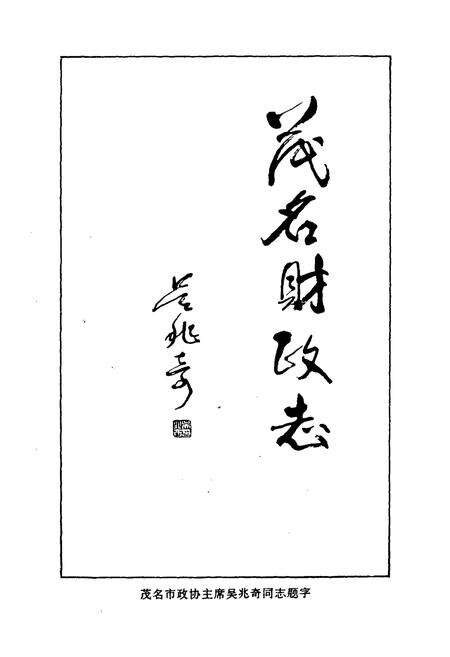 茂名財政志
吴兆奇
茂名市政协主席吴兆奇同志题字